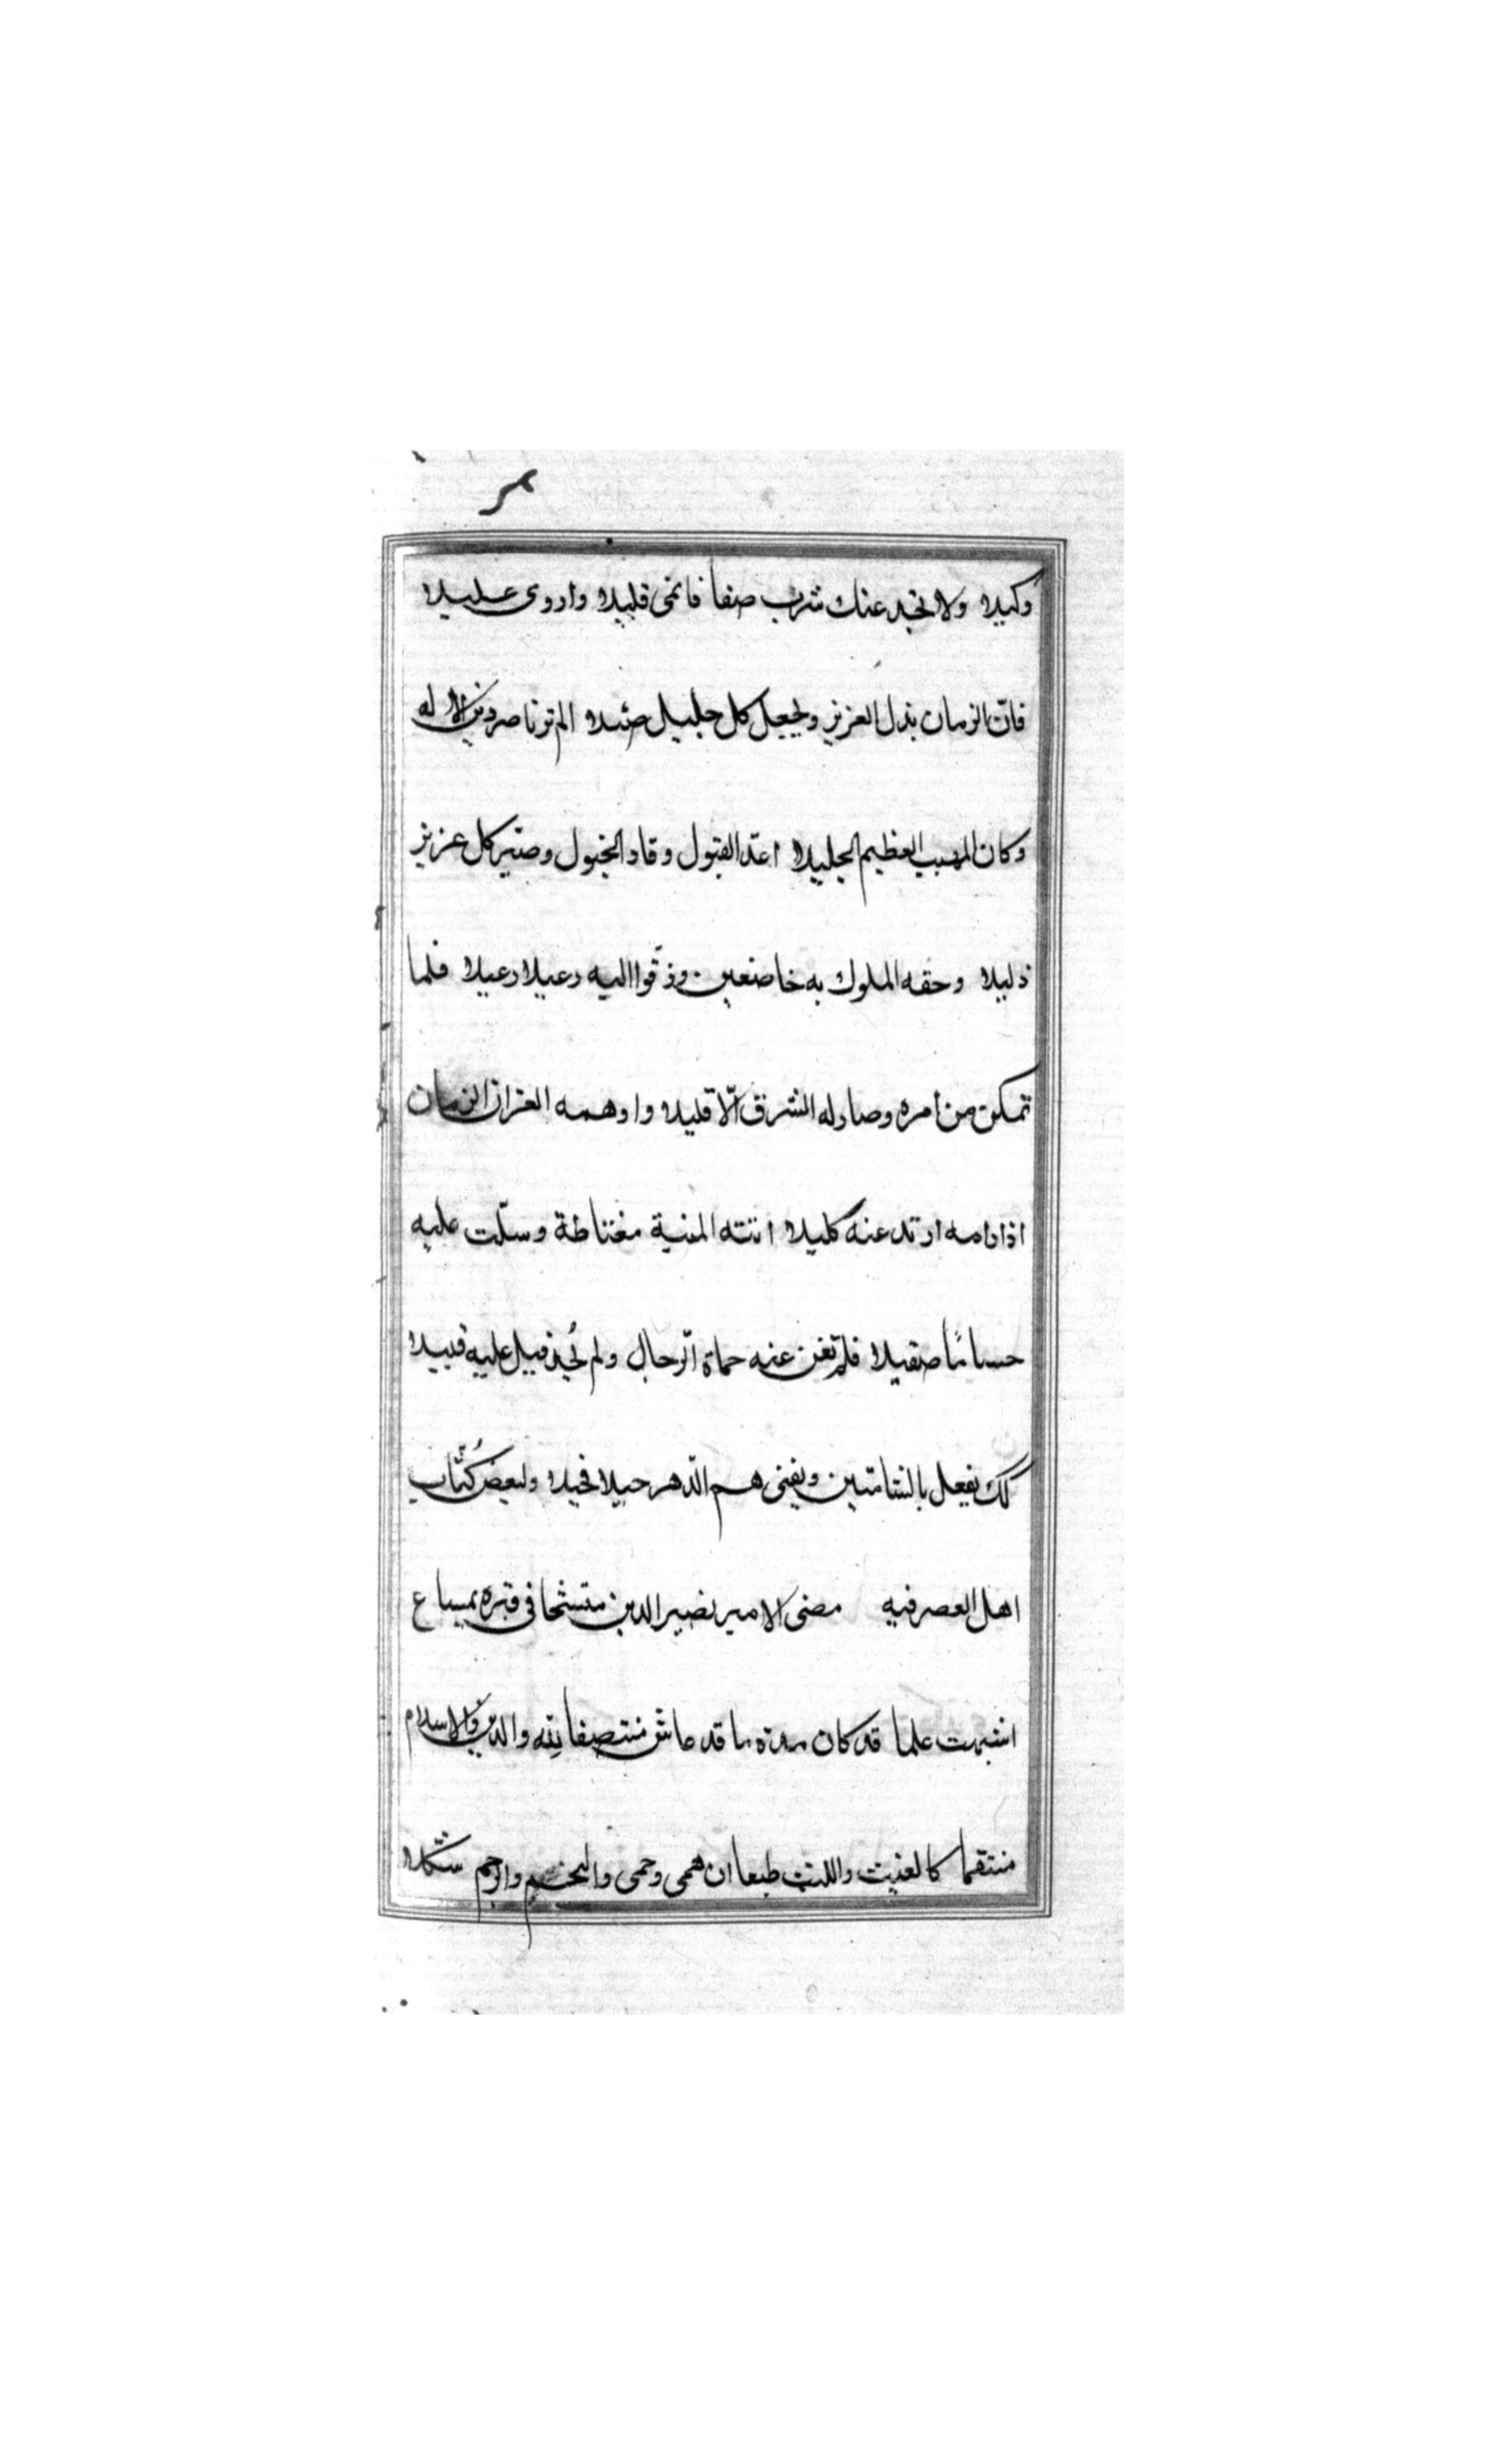 وكيلا ولا تخد عنك شرب صفا فانمى قليلا واروى غليلا
فانّ الزمان يذل العزيز ويجعل كل جليل ضئيلا الم تر ناصر دين الاله
وكان المهيب العظيم الجليلا اعدّ القيول وقاد الخيول وصيّر كل عزيز
ذليلا وحفه الملوك به خاضعين وزفّوا اليه رعيلا رعيلا فلما
تمكن من أمره وصار له الشرق الّا قليلا واوهمه العز ان الزمان
اذا رامه ارتد عنه كليلا اتته المنية مغتاظة وسلّت عليه
حساما صقيلا فلم تغن عنه حماة الرّجال ولم يُجد فيل عليه فتيلا
كك يفعل بالشامتين ويفنى هم الدّهر جيلا فجيلا ولبعض كُتّاب
اهل العصر فيه مضى الامير نصير الدين متشحا فى قبره بمساع
اشبهت علما قد كان مدة ما قد عاش منتصفا لله والدين والاسلام
منتقما كالغيث والليث طبعا ان همى وحمى والنجم والرجم